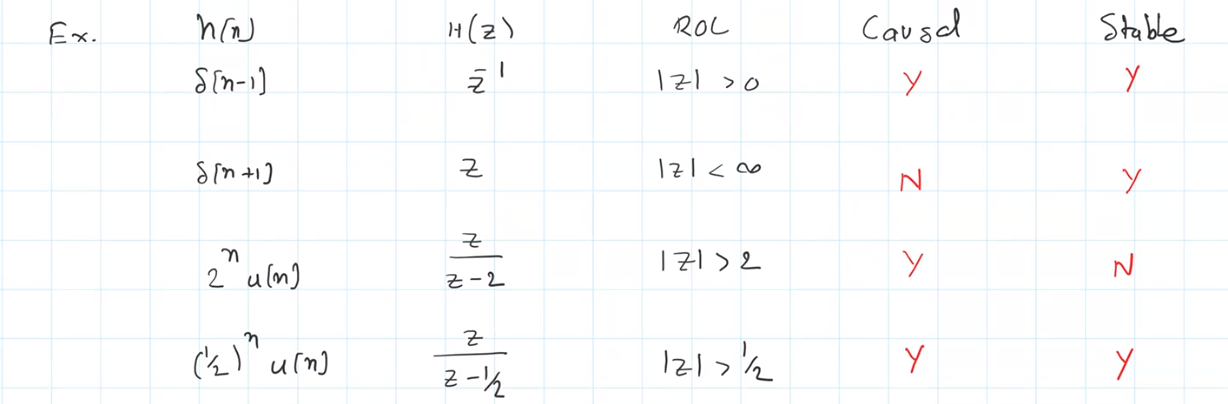 Ex. h[n] H(z) ROC Causal Stable
δ[n-1] z⁻¹ |z| > 0 Y Y
δ[n+1] z |z| < ∞ N Y
2ⁿ u[n] z/(z-2) |z| > 2 Y N
(1/2)ⁿ u[n] z/(z-1/2) |z| > 1/2 Y Y